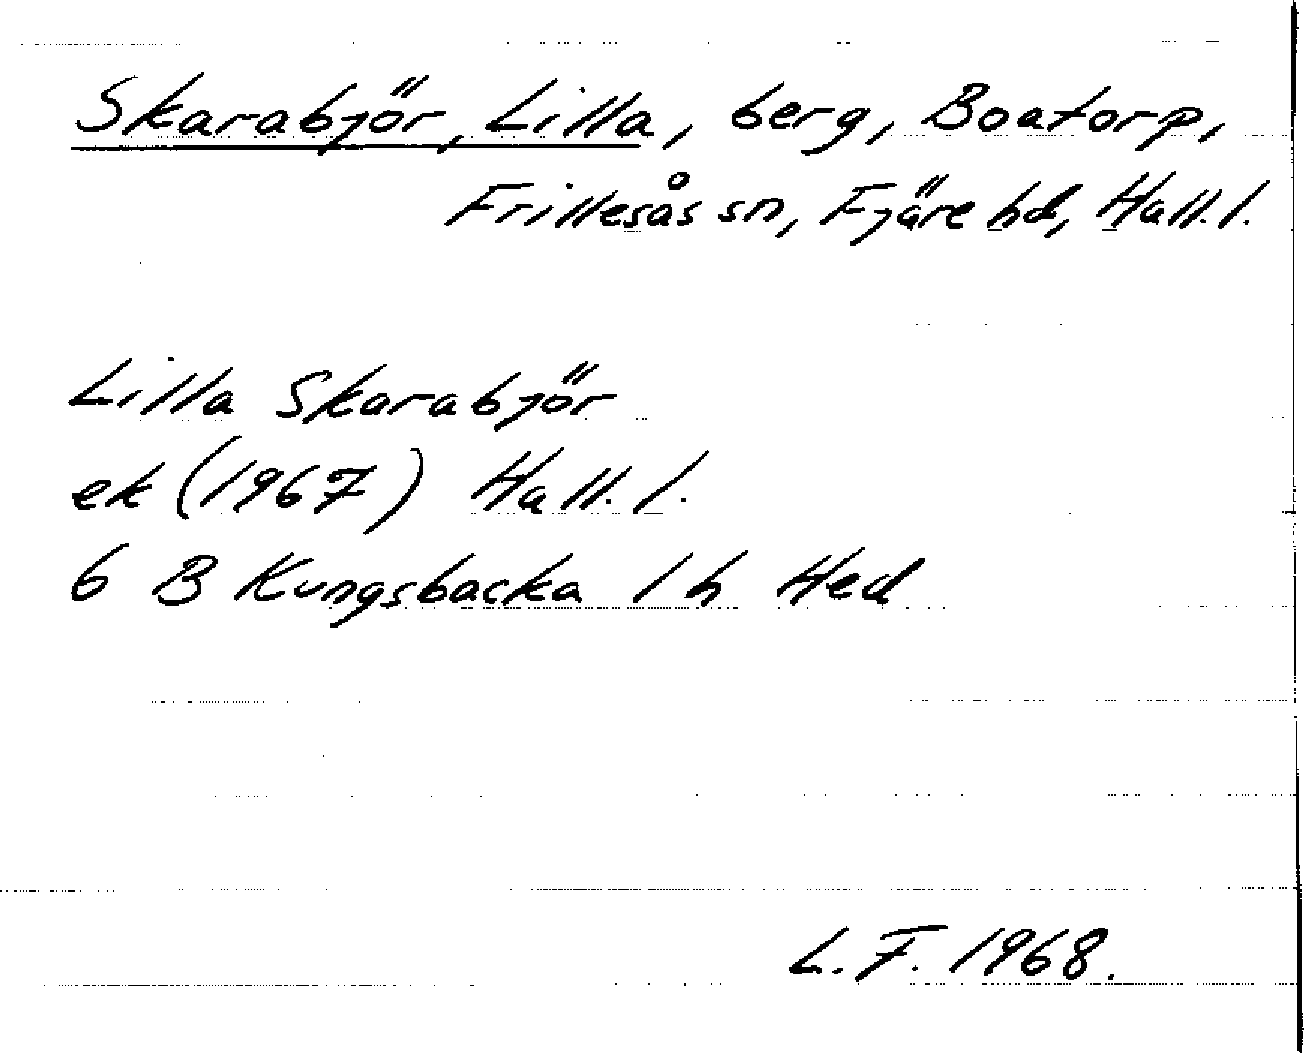 Skarabjör, Lilla, berg, Boatorp,
Frillesås sn, Fjäre hd, Hall. l.
Lilla Skarabjör
ek (1967) Hall. l.
6 B Kungsbacka 1 h Hed
L. F. 1968.